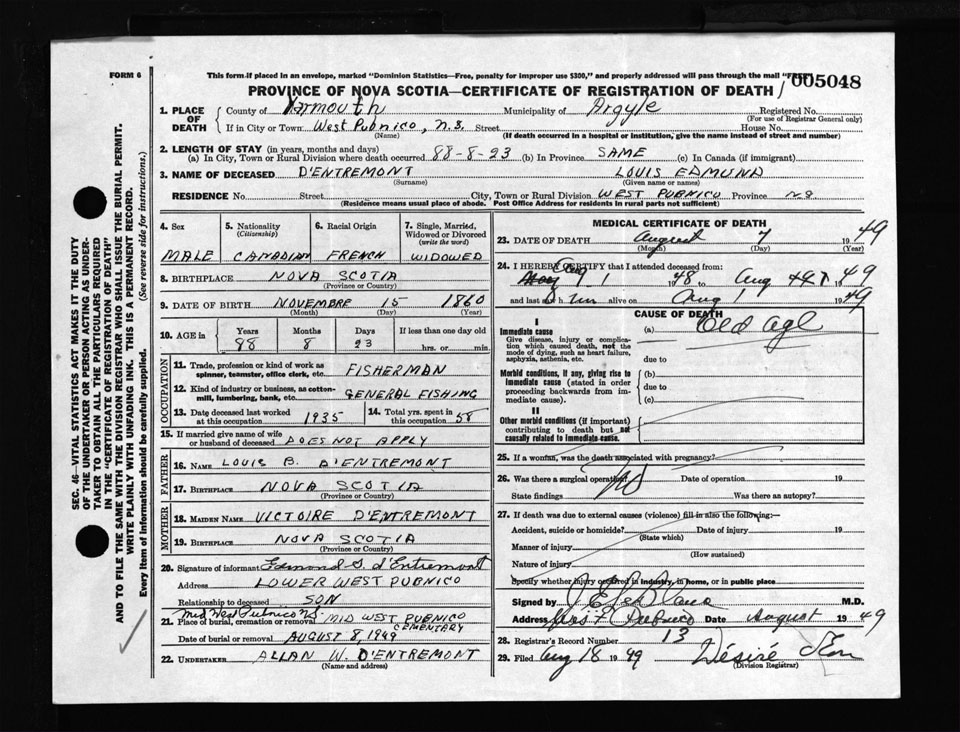 FORM 6
This form if placed in an envelope, marked "Dominion Statistics—Free, penalty for improper use $300," and properly addressed will pass through the mail
005048
PROVINCE OF NOVA SCOTIA—CERTIFICATE OF REGISTRATION OF DEATH
1. PLACE OF DEATH County of Yarmouth Municipality of Argyle Registered No.
(For use of Registrar General only)
If in City or Town West Pubnico, N.S. Street House No.
(Name) (If death occurred in a hospital or institution, give the name instead of street and number)
2. LENGTH OF STAY (in years, months and days)
(a) In City, Town or Rural Division where death occurred 88-8-23 (b) In Province SAME (c) In Canada (if immigrant)
3. NAME OF DECEASED D'ENTREMONT LOUIS EDMUND
(Surname) (Given name or names)
RESIDENCE No. Street City, Town or Rural Division WEST PUBNICO Province N.S.
(Residence means usual place of abode. Post Office Address for residents in rural parts not sufficient)
4. Sex 5. Nationality (Citizenship) 6. Racial Origin 7. Single, Married, Widowed or Divorced (write the word)
MALE CANADIAN FRENCH WIDOWED
8. BIRTHPLACE NOVA SCOTIA
(Province or Country)
9. DATE OF BIRTH NOVEMBRE 15 1860
(Month) (Day) (Year)
10. AGE in Years Months Days If less than one day old
88 8 23 hrs. or min.
OCCUPATION
11. Trade, profession or kind of work as spinner, teamster, office clerk, etc. FISHERMAN
12. Kind of industry or business, as cotton-mill, lumbering, bank, etc. GENERAL FISHING
13. Date deceased last worked at this occupation 1935 14. Total yrs. spent in this occupation 58
15. If married give name of wife or husband of deceased DOES NOT APPLY
FATHER
16. NAME LOUIS B. D'ENTREMONT
17. BIRTHPLACE NOVA SCOTIA
(Province or Country)
MOTHER
18. MAIDEN NAME VICTOIRE D'ENTREMONT
19. BIRTHPLACE NOVA SCOTIA
(Province or Country)
20. Signature of informant Edmond G. d'Entremont
Address LOWER WEST PUBNICO
Relationship to deceased SON
Mid West Pubnico N.S.
21. Place of burial, cremation or removal MID WEST PUBNICO CEMENTARY
Date of burial or removal AUGUST 8, 1949
22. UNDERTAKER ALLAN W. D'ENTREMONT
(Name and address)
MEDICAL CERTIFICATE OF DEATH
23. DATE OF DEATH August 7 1949
(Month) (Day)
24. I HEREBY CERTIFY that I attended deceased from:
Aug 1 1948 to Aug 1949
and last saw him alive on Aug 1 1949
CAUSE OF DEATH
I
Immediate cause (a) Old Age
Give disease, injury or complication which caused death, not the mode of dying, such as heart failure, asphyxia, asthenia, etc.
due to
Morbid conditions, if any, giving rise to immediate cause (stated in order proceeding backwards from immediate cause).
(b)
due to
(c)
II
Other morbid conditions (if important) contributing to death but not causally related to immediate cause.
25. If a woman, was the death associated with pregnancy?
26. Was there a surgical operation? No Date of operation 19
State findings Was there an autopsy?
27. If death was due to external causes (violence) fill in also the following:—
Accident, suicide or homicide? Date of injury 19
(State which)
Manner of injury
(How sustained)
Nature of injury
Specify whether injury occurred in industry, in home, or in public place
Signed by M.D.
Address Pubnico Date August 1949
28. Registrar's Record Number 13
29. Filed Aug 18 1949 Désiré
(Division Registrar)
SEC. 46—VITAL STATISTICS ACT MAKES IT THE DUTY
OF THE UNDERTAKER OR PERSON ACTING AS UNDER-
TAKER TO OBTAIN ALL THE PARTICULARS REQUIRED
IN THE "CERTIFICATE OF REGISTRATION OF DEATH"
AND TO FILE THE SAME WITH THE DIVISION REGISTRAR WHO SHALL ISSUE THE BURIAL PERMIT.
WRITE PLAINLY WITH UNFADING INK. THIS IS A PERMANENT RECORD.
Every item of information should be carefully supplied. (See reverse side for instructions.)